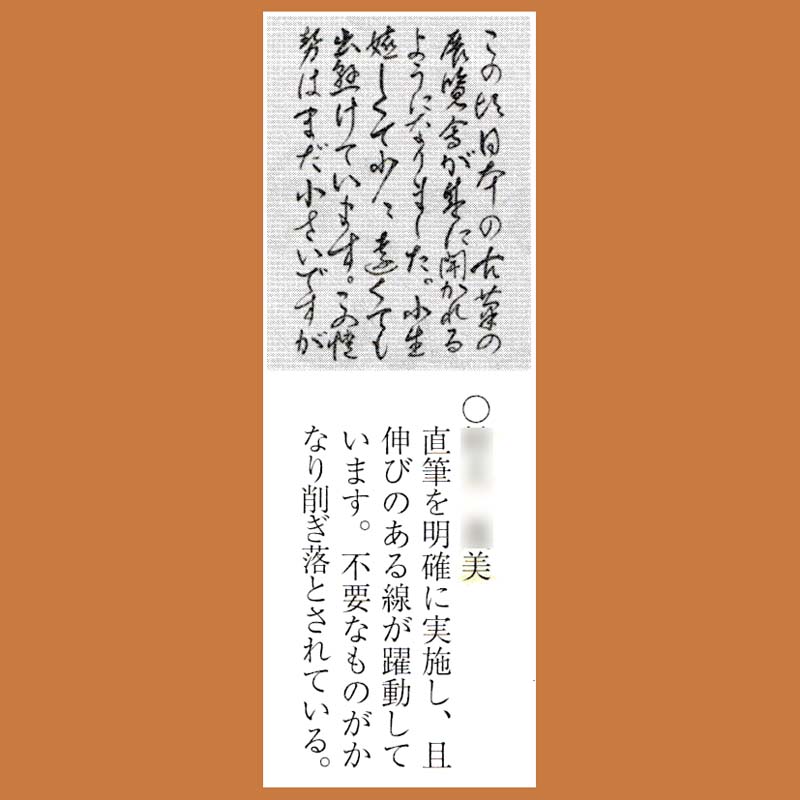 この頃日本の古筆の
展覧会が盛に開かれる
ようになりました。小生
嬉しくて少々遠くても
出懸けています。この情
勢はまだ小さいですが
○美
直筆を明確に実施し、且
伸びのある線が躍動して
います。不要なものがか
なり削ぎ落とされている。